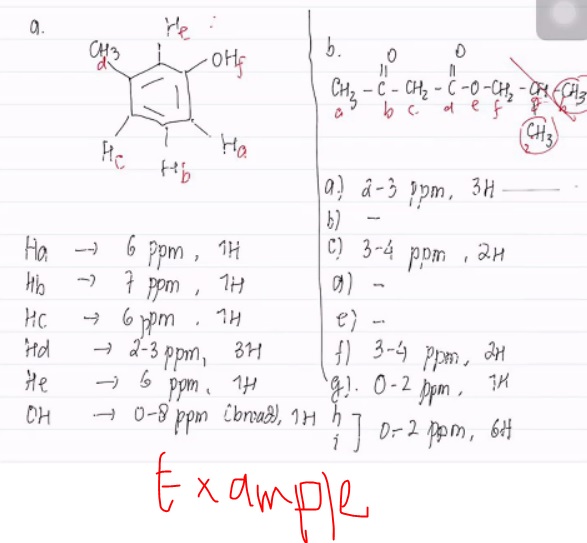 a.
He
CH3
d
OHf
Hc
Hb
Ha
Ha → 6 ppm, 1H
Hb → 7 ppm, 1H
Hc → 6 ppm, 1H
Hd → 2-3 ppm, 3H
He → 6 ppm, 1H
OH → 0-8 ppm (broad), 1H
b.
O O
CH3 - C - CH2 - C - O - CH2 - CH - CH3
a b c d e f g h
CH3
a) 2-3 ppm, 3H
b) -
c) 3-4 ppm, 2H
d) -
e) -
f) 3-4 ppm, 2H
g). 0-2 ppm, 1H
h
i ] 0-2 ppm, 6H
Example